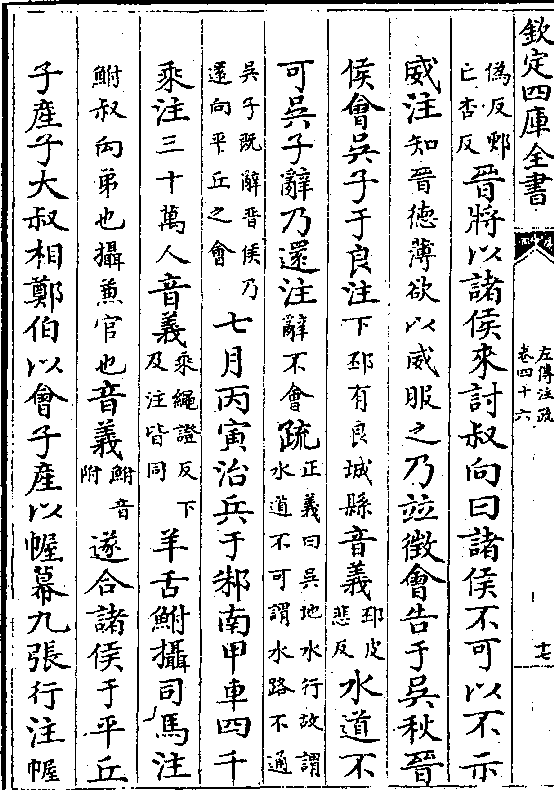 欽定四庫全書
左傳注疏
卷四十六
十七
偽反鄄
亡杏反
晉將以諸侯來討叔向曰諸侯不可以不示
威注知晉德薄欲以威服之乃並徵會告于吳秋晉
侯會吳子于良注下邳有良城縣音義邳皮
悲反
水道不
可吳子辭乃還注辭不會疏正義曰吳地水行故謂
水道不可謂水路不通
吳子既辭晉侯乃
還向平丘之會
七月丙寅治兵于邾南甲車四千
乘注三十萬人音義乘繩證反下
及注皆同
羊舌鮒攝司馬注
鮒叔向弟也攝兼官也音義鮒音
附
遂合諸侯于平丘
子產子大叔相鄭伯以會子產以幄幕九張行注幄